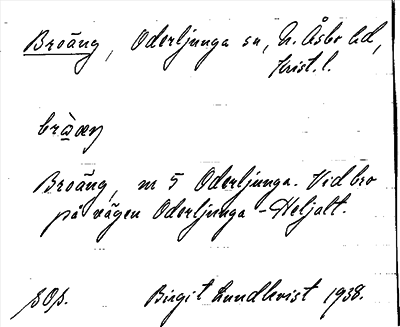 Broäng, Oderljunga sn, N. Åsbo hd,
Krist. l.
Broäng, nr 5 Oderljunga. Vid bro
på vägen Oderljunga - Heljalt.
Birgit Lundkvist 1938.